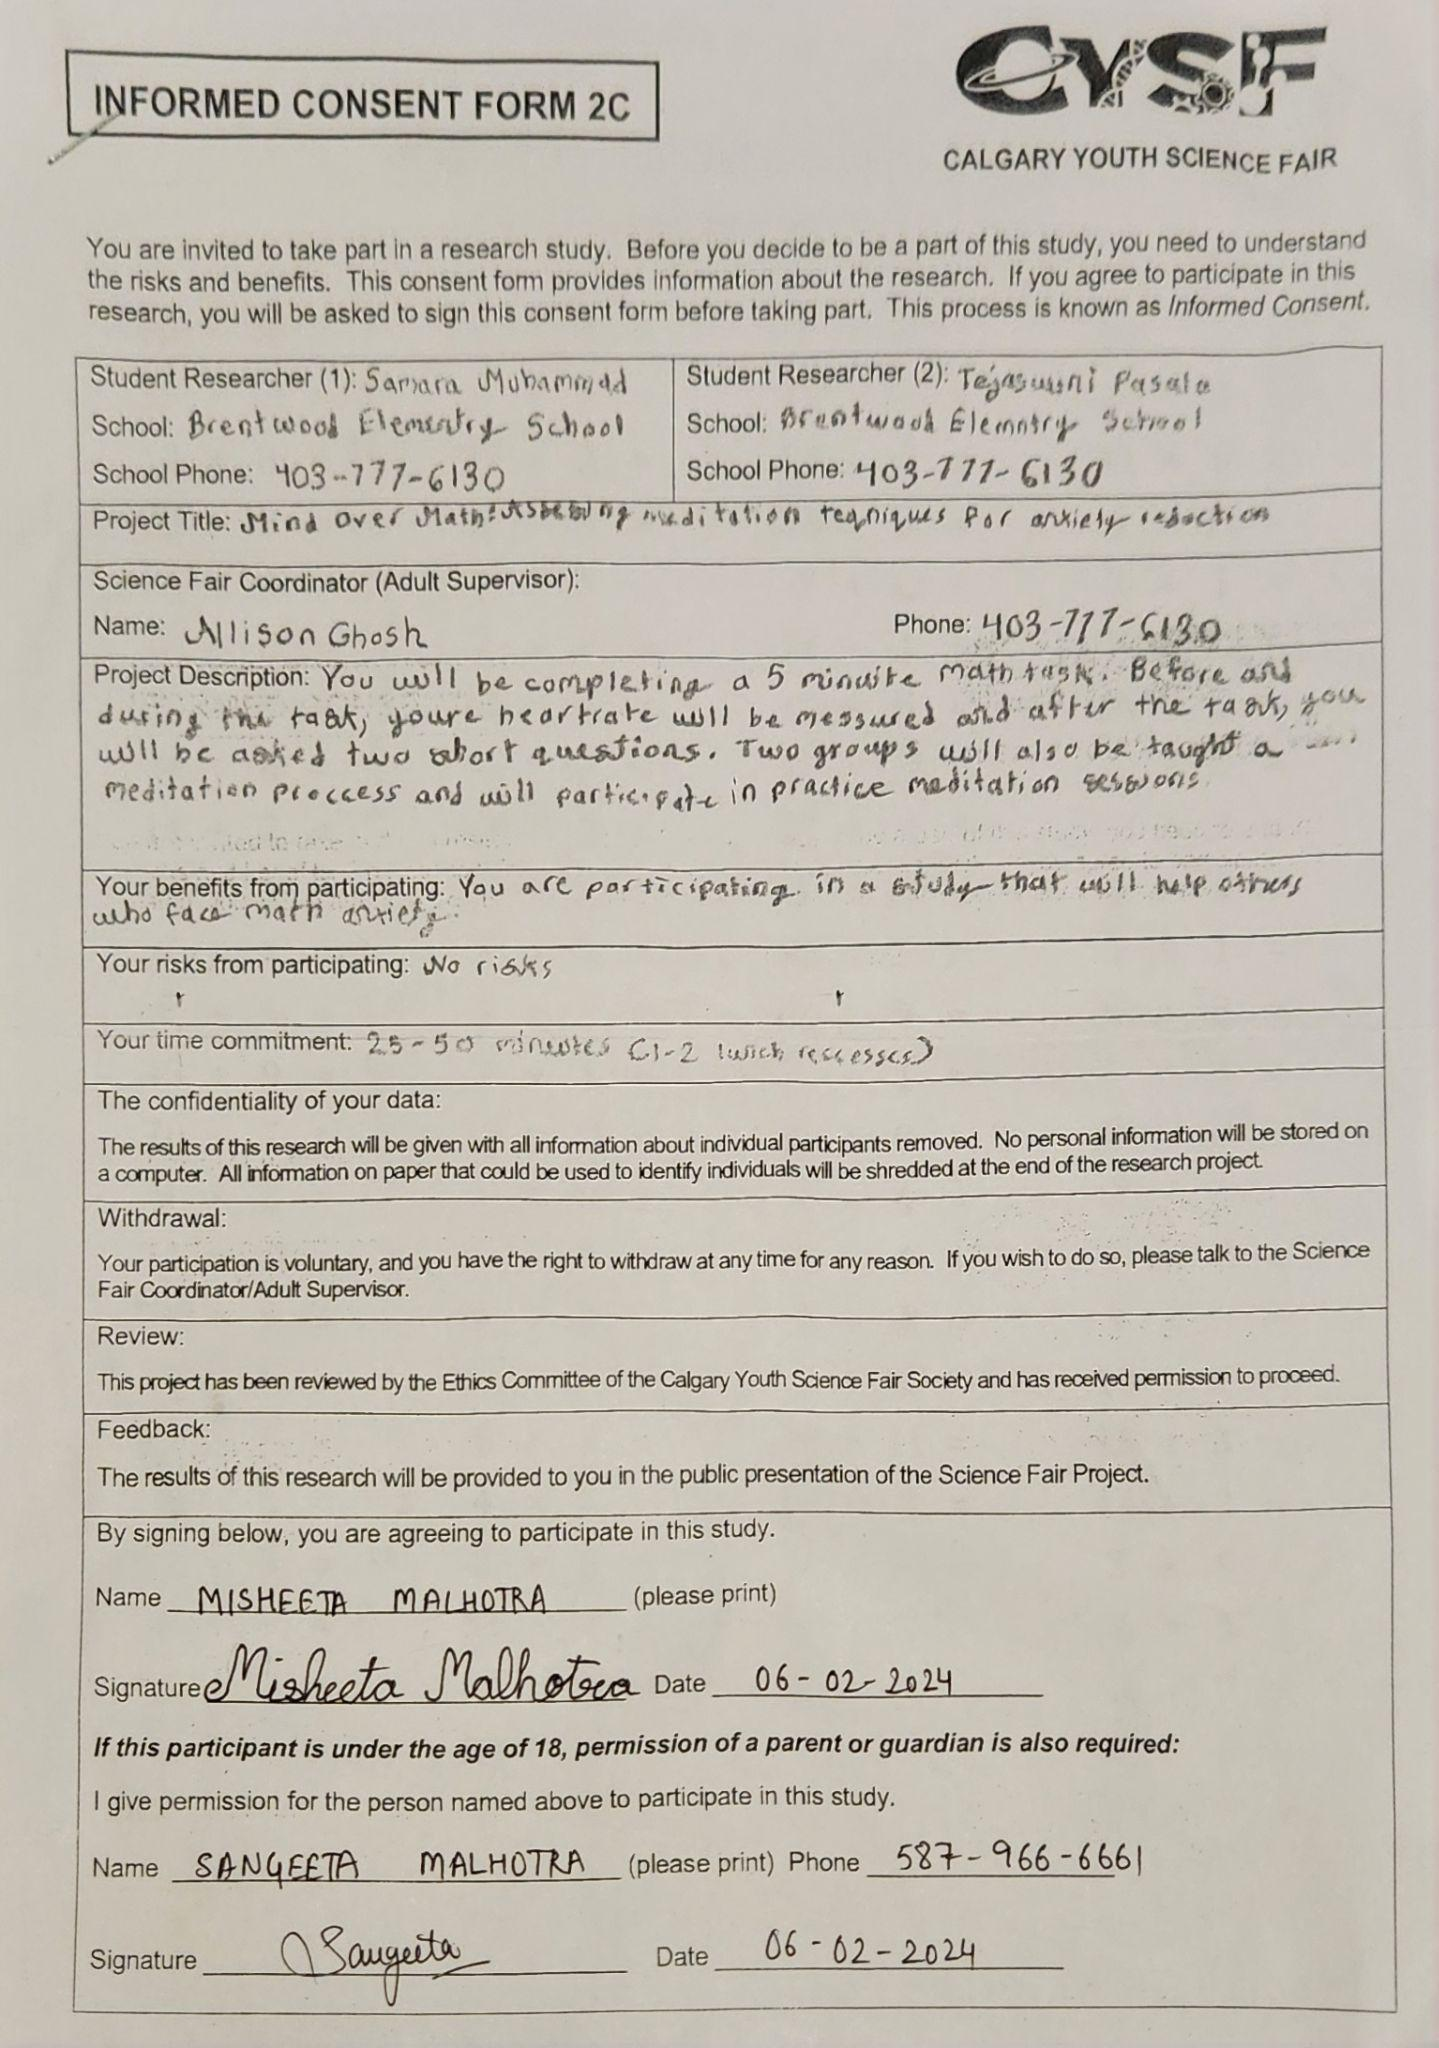 INFORMED CONSENT FORM 2C
CYSF
CALGARY YOUTH SCIENCE FAIR
You are invited to take part in a research study. Before you decide to be a part of this study, you need to understand
the risks and benefits. This consent form provides information about the research. If you agree to participate in this
research, you will be asked to sign this consent form before taking part. This process is known as Informed Consent.
Student Researcher (1): Samara Muhammad
School: Brentwood Elementry School
School Phone: 403-777-6130
Student Researcher (2): Pasala
School: Brentwood Elemntry School
School Phone: 403-777-6130
Project Title: Mind Over Math: meditation teqniques for anxiety reduction
Science Fair Coordinator (Adult Supervisor):
Name: Allison Ghosh
Phone: 403-777-6130
Project Description: You will be completing a 5 minuite math task. Before and
during the task, youre heartrate will be messured and after the task, you
will be asked two short questions. Two groups will also be taught a
meditation proccess and will participate in practice meditation sessions.
Your benefits from participating: You are participating in a study that will help others
who face math anxiety.
Your risks from participating: No risks
Your time commitment: 25-50 minutes (1-2 lunch recesses)
The confidentiality of your data:
The results of this research will be given with all information about individual participants removed. No personal information will be stored on
a computer. All information on paper that could be used to identify individuals will be shredded at the end of the research project.
Withdrawal:
Your participation is voluntary, and you have the right to withdraw at any time for any reason. If you wish to do so, please talk to the Science
Fair Coordinator/Adult Supervisor.
Review:
This project has been reviewed by the Ethics Committee of the Calgary Youth Science Fair Society and has received permission to proceed.
Feedback:
The results of this research will be provided to you in the public presentation of the Science Fair Project.
By signing below, you are agreeing to participate in this study.
Name MISHEETA MALHOTRA (please print)
Signature Misheeta Malhotra Date 06-02-2024
If this participant is under the age of 18, permission of a parent or guardian is also required:
I give permission for the person named above to participate in this study.
Name SANGEETA MALHOTRA (please print) Phone 587-966-6661
Signature Sangeeta Date 06-02-2024